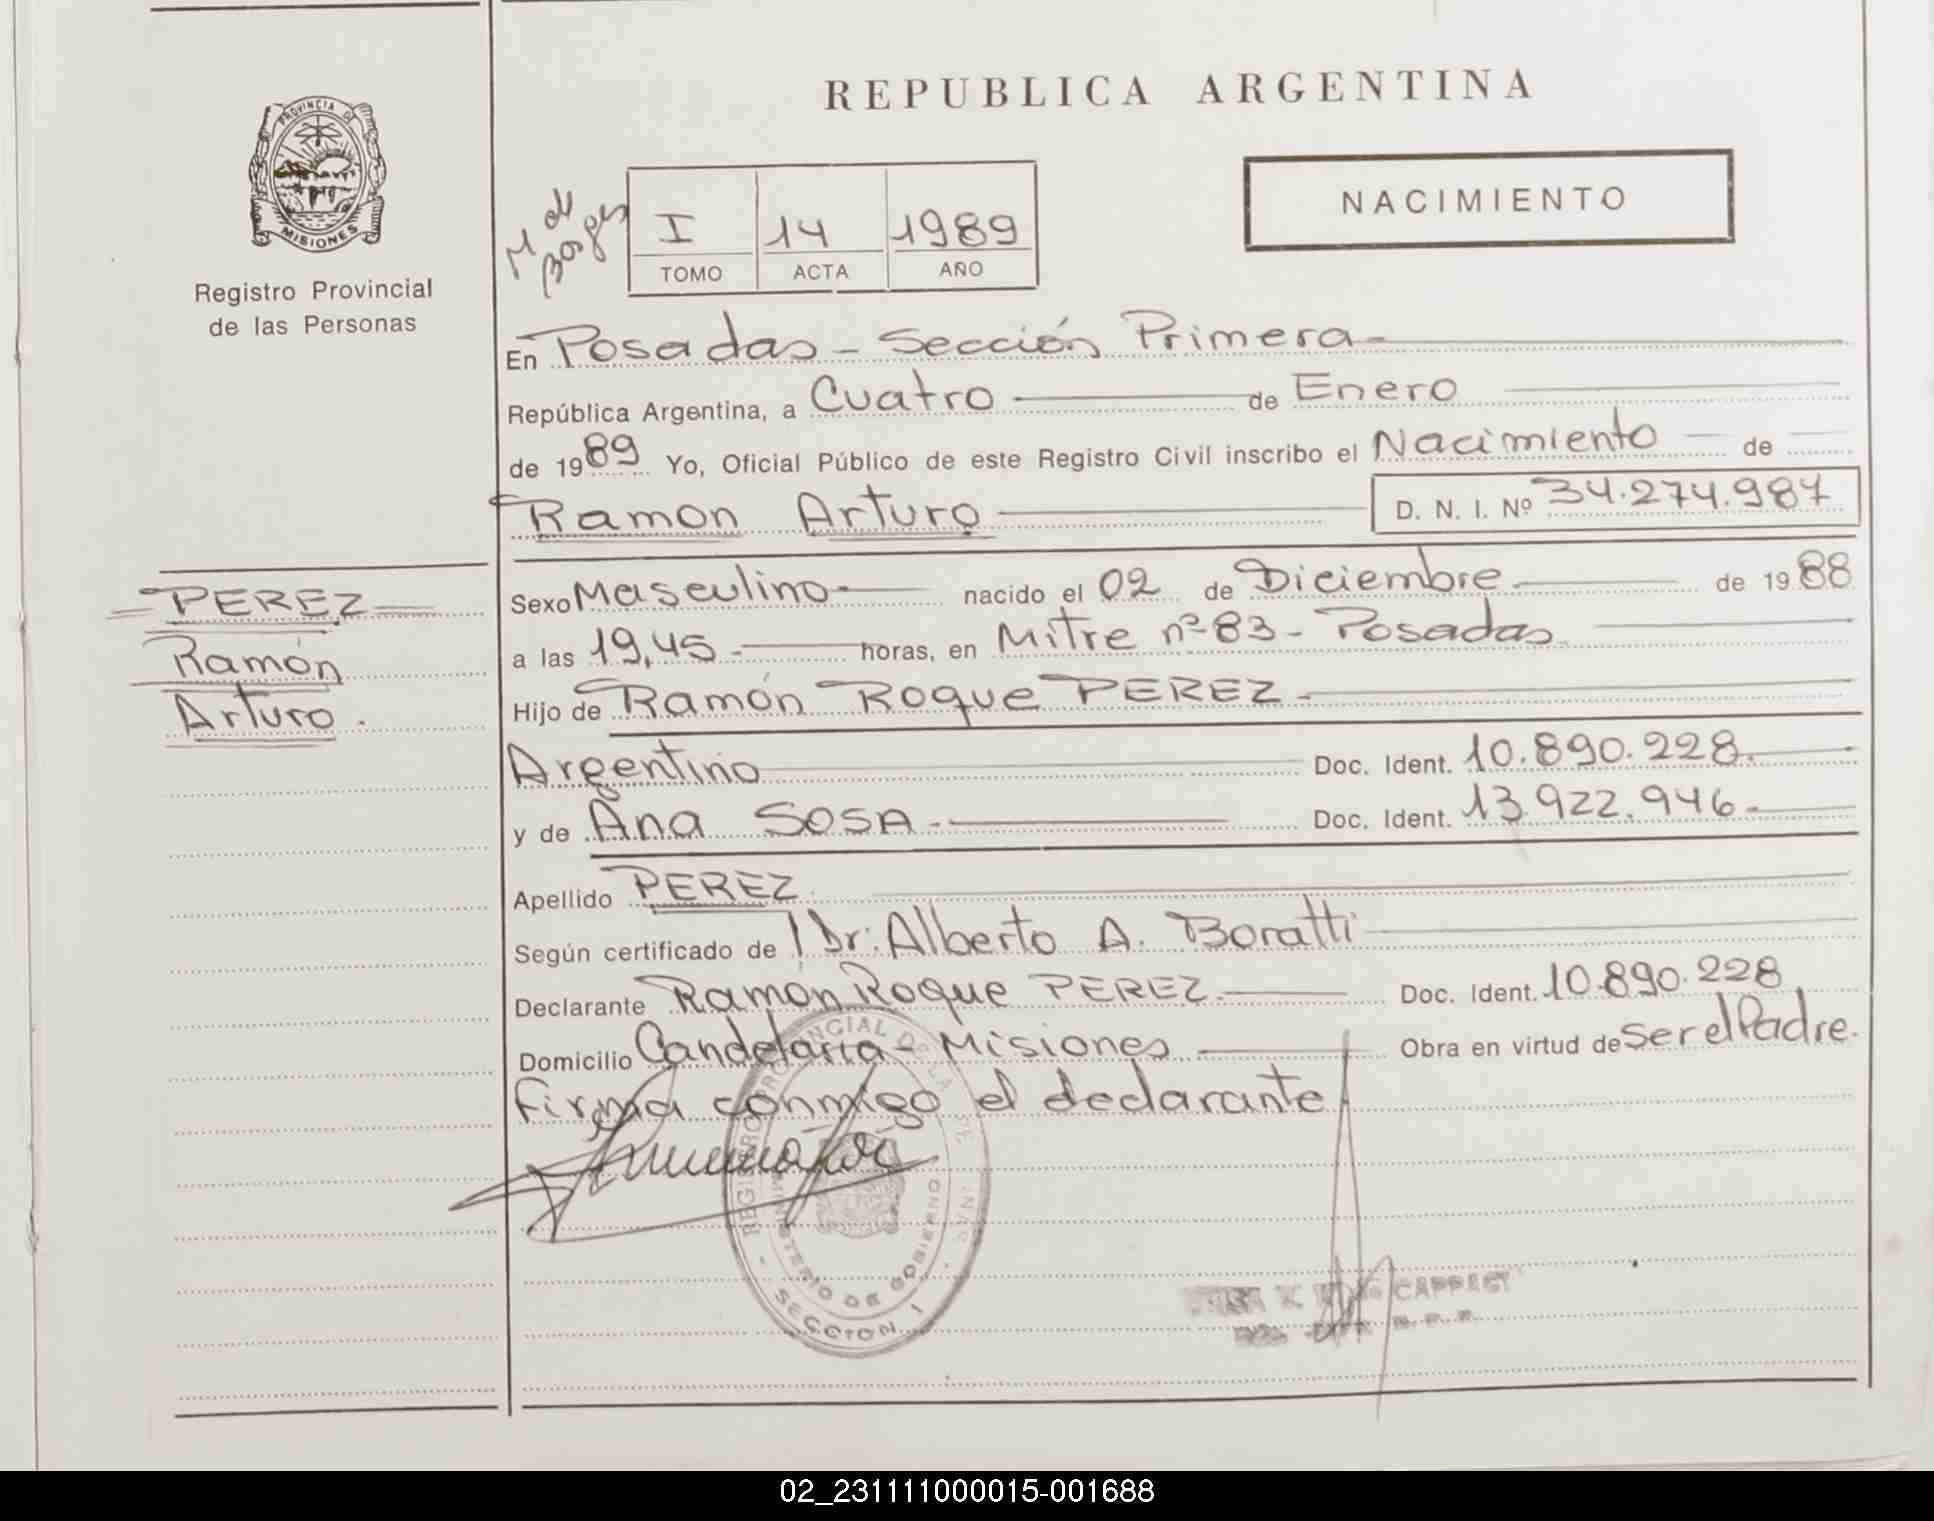 REPUBLICA ARGENTINA
PROVINCIA DE
MISIONES
Registro Provincial
de las Personas
NACIMIENTO
I 14 1989
TOMO ACTA AÑO
En Posadas - Sección Primera
República Argentina, a Cuatro de Enero
de 1989 Yo, Oficial Público de este Registro Civil inscribo el Nacimiento de
Ramon Arturo D. N. I. Nº 34.274.987
PEREZ
Ramón
Arturo.
Sexo Masculino nacido el 02 de Diciembre de 1988
a las 19,45 horas, en Mitre nº 83 - Posadas
Hijo de Ramón Roque PEREZ
Argentino Doc. Ident. 10.890.228.
y de Ana SOSA Doc. Ident. 13.922.946
Apellido PEREZ
Según certificado de Dr: Alberto A. Boratti
Declarante Ramón Roque PEREZ Doc. Ident. 10.890.228
Domicilio Candelaria - Misiones Obra en virtud de ser el Padre.
Firma conmigo el declarante
REGISTRO PROVINCIAL DE LA
MINISTERIO DE GOBIERNO
SECCION 1
02_231111000015-001688